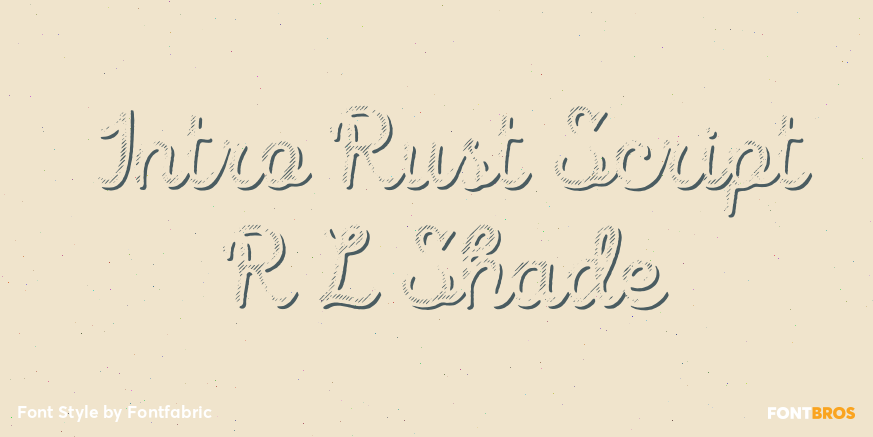 Intro Rust Script
R L Shade
Font Style by Fontfabric
FONTBROS